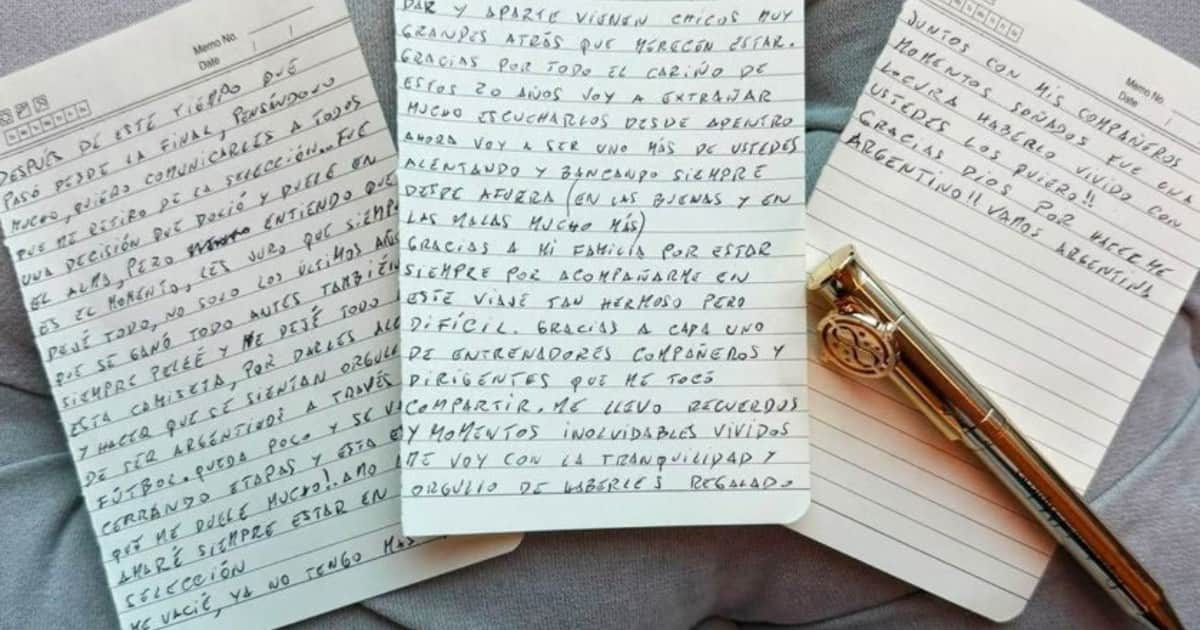 Memo No.
Date / /
DESPUÉS DE ESTE TIEMPO QUE
PASÓ DESDE LA FINAL, PENSÁNDOLO
MUCHO, QUIERO COMUNICARLES A TODOS
QUE ME RETIRO DE LA SELECCIÓN.. FUE
UNA DECISIÓN QUE DOLIÓ Y DUELE EN
EL ALMA, PERO ENTIENDO QUE
ES EL MOMENTO, LES JURO QUE SIEMP
DEJÉ TODO, NO SOLO LOS ÚLTIMOS AÑO
QUE SE GANÓ TODO ANTES TAMBIÉN
SIEMPRE PELEÉ Y ME DEJÉ TODO
ESTA CAMISETA, POR DARLES ALE
Y HACER QUE SE SIENTAN ORGULL
DE SER ARGENTINOS A TRAVÉS
FÚTBOL. QUEDA POCO Y SE VA
CERRANDO ETAPAS Y ESTA E
QUE ME DUELE MUCHO!. AMO
AMARÉ SIEMPRE ESTAR EN
SELECCIÓN
ME VACIÉ, YA NO TENGO MAS
DAR Y APARTE VIENEN CHICOS MUY
GRANDES ATRÁS QUE MERECEN ESTAR.
GRACIAS POR TODO EL CARIÑO DE
ESTOS 20 AÑOS VOY A EXTRAÑAR
MUCHO ESCUCHARLOS DESDE ADENTRO
AHORA VOY A SER UNO MÁS DE USTEDES
ALENTANDO Y BANCANDO SIEMPRE
DESDE AFUERA (EN LAS BUENAS Y EN
LAS MALAS MUCHO MÁS)
GRACIAS A MI FAMILIA POR ESTAR
SIEMPRE POR ACOMPAÑARME EN
ESTE VIAJE TAN HERMOSO PERO
DIFÍCIL. GRACIAS A CADA UNO
DE ENTRENADORES COMPAÑEROS Y
DIRIGENTES QUE ME TOCÓ
COMPARTIR. ME LLEVO RECUERDOS
Y MOMENTOS INOLVIDABLES VIVIDOS
ME VOY CON LA TRANQUILIDAD Y
ORGULLO DE HABERLES REGALADO
Memo No.
Date /
JUNTOS CON MIS COMPAÑEROS
MOMENTOS SOÑADOS FUE UNA
LOCURA HABERLO VIVIDO CON
USTEDES LOS QUIERO!!
GRACIAS DIOS POR HACERME
ARGENTINO!! VAMOS ARGENTINA